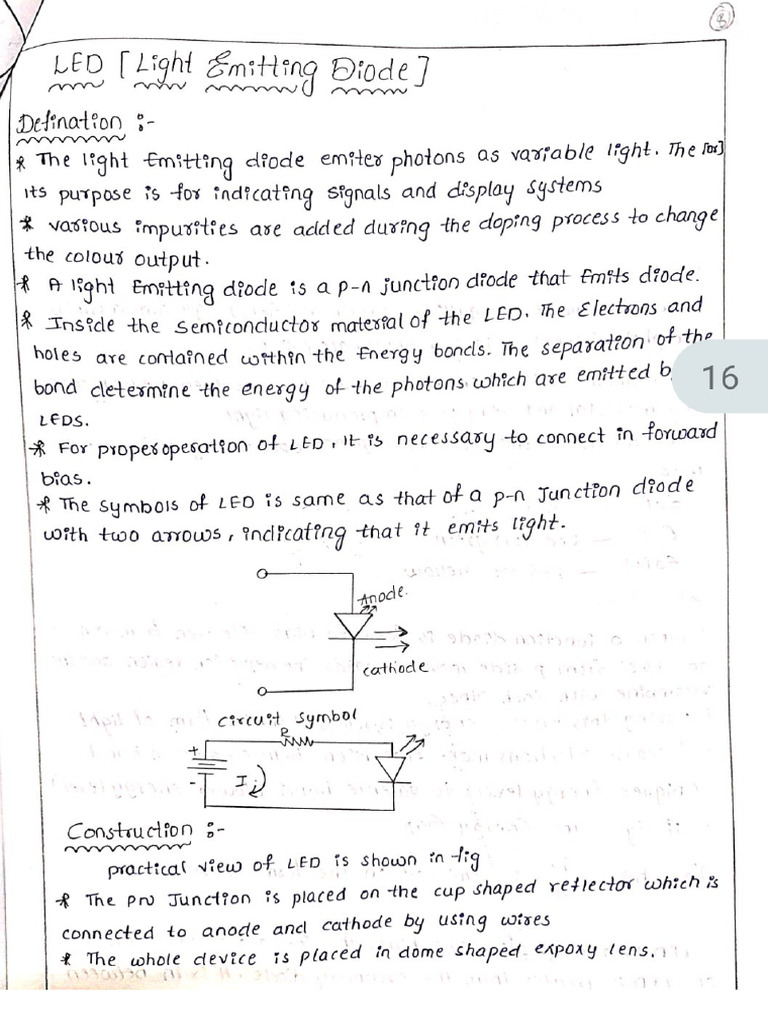 8
LED [Light Emitting Diode]
Defination :-
* The light Emitting diode emiter photons as variable light. The [or]
its purpose is for indicating signals and display systems
* various impurities are added during the doping process to change
the colour output.
* A light Emitting diode is a p-n junction diode that Emits diode.
* Inside the semiconductor material of the LED. The Electrons and
holes are contained within the Energy bonds. The separation of the
bond determine the energy of the photons which are emitted b
16
LEDS.
* For proper operation of LED, it is necessary to connect in forward
bias.
* The symbols of LED is same as that of a p-n Junction diode
with two arrows, indicating that it emits light.
Anode.
cathode
circuit symbol
R
+
-
I
Construction :-
practical view of LED is shown in fig
* The PN Junction is placed on the cup shaped reflector which is
connected to anode and cathode by using wires
* The whole device is placed in dome shaped expoxy lens.